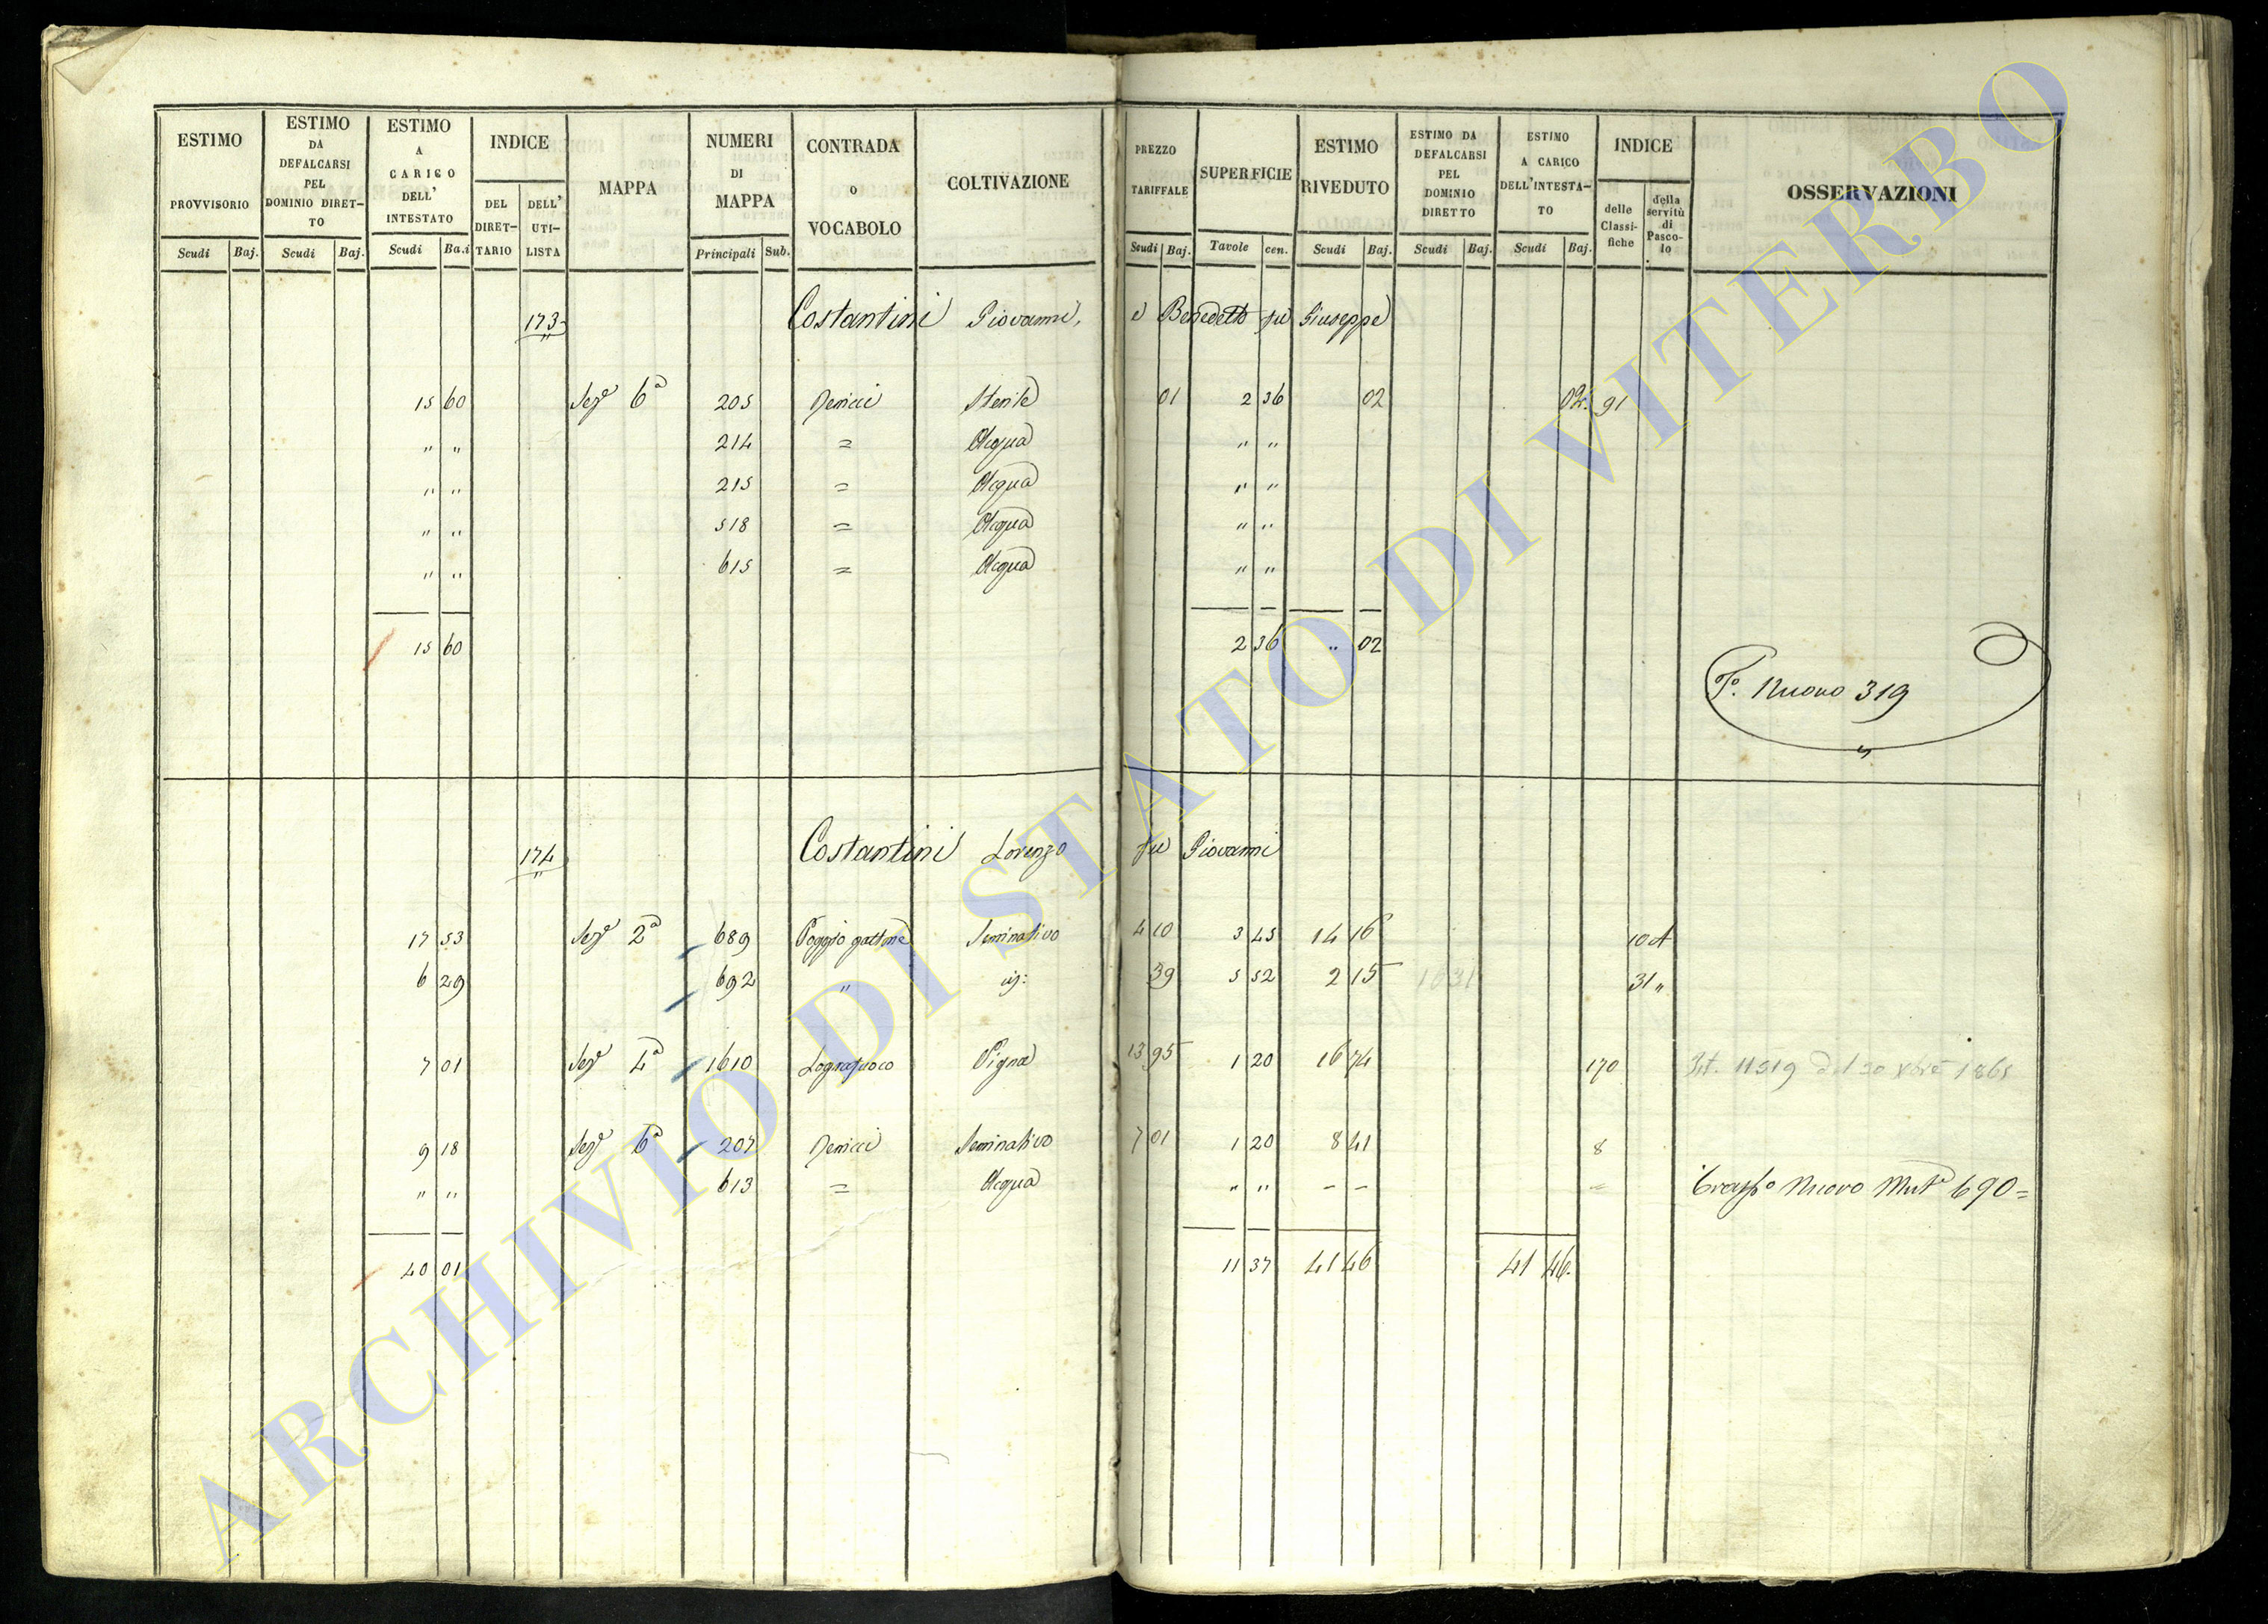 ESTIMO PROVVISORIO Scudi Baj.
ESTIMO DA DEFALCARSI PEL DOMINIO DIRET-TO Scudi Baj.
ESTIMO A CARICO DELL' INTESTATO Scudi Ba.i
INDICE DEL DIRET-TARIO DELL' UTI-LISTA
MAPPA
NUMERI DI MAPPA Principali Sub.
CONTRADA O VOCABOLO
COLTIVAZIONE
PREZZO TARIFFALE Scudi Baj.
SUPERFICIE Tavole cen.
ESTIMO RIVEDUTO Scudi Baj.
ESTIMO DA DEFALCARSI PEL DOMINIO DIRETTO Scudi Baj.
ESTIMO A CARICO DELL'INTESTA-TO Scudi Baj.
INDICE delle Classi-fiche della servitù di Pasco-lo
OSSERVAZIONI
173 Costantini Giovanni, e Benedetto fu Giuseppe
15 60 Sez.e 6a 205 Sterile 01 2 36 02 02. 91
" " 214 = Acqua " "
" " 215 = Acqua " "
" " 518 = Acqua " "
" " 615 = Acqua " "
15 60 2 36 " 02
Po. Nuovo 319
174 Costantini Lorenzo fu Giovanni
17 53 Sez.e 2a 689 Poggio gattone Seminativo 4 10 3 45 14 16 10 A
6 29 692 " id: 39 5 52 2 15 31 "
7 01 Sez.e 4a 1610 Logrosfuoco Vigna 13 95 1 20 16 74 170 11519 del 20 1865
9 18 Sez.e 6a 207 Seminativo 7 01 1 20 8 41 8
" " 613 = Acqua " " – – =
Nuovo 690=
40 01 11 37 41 46 41 46.
ARCHIVIO DI STATO DI VITERBO